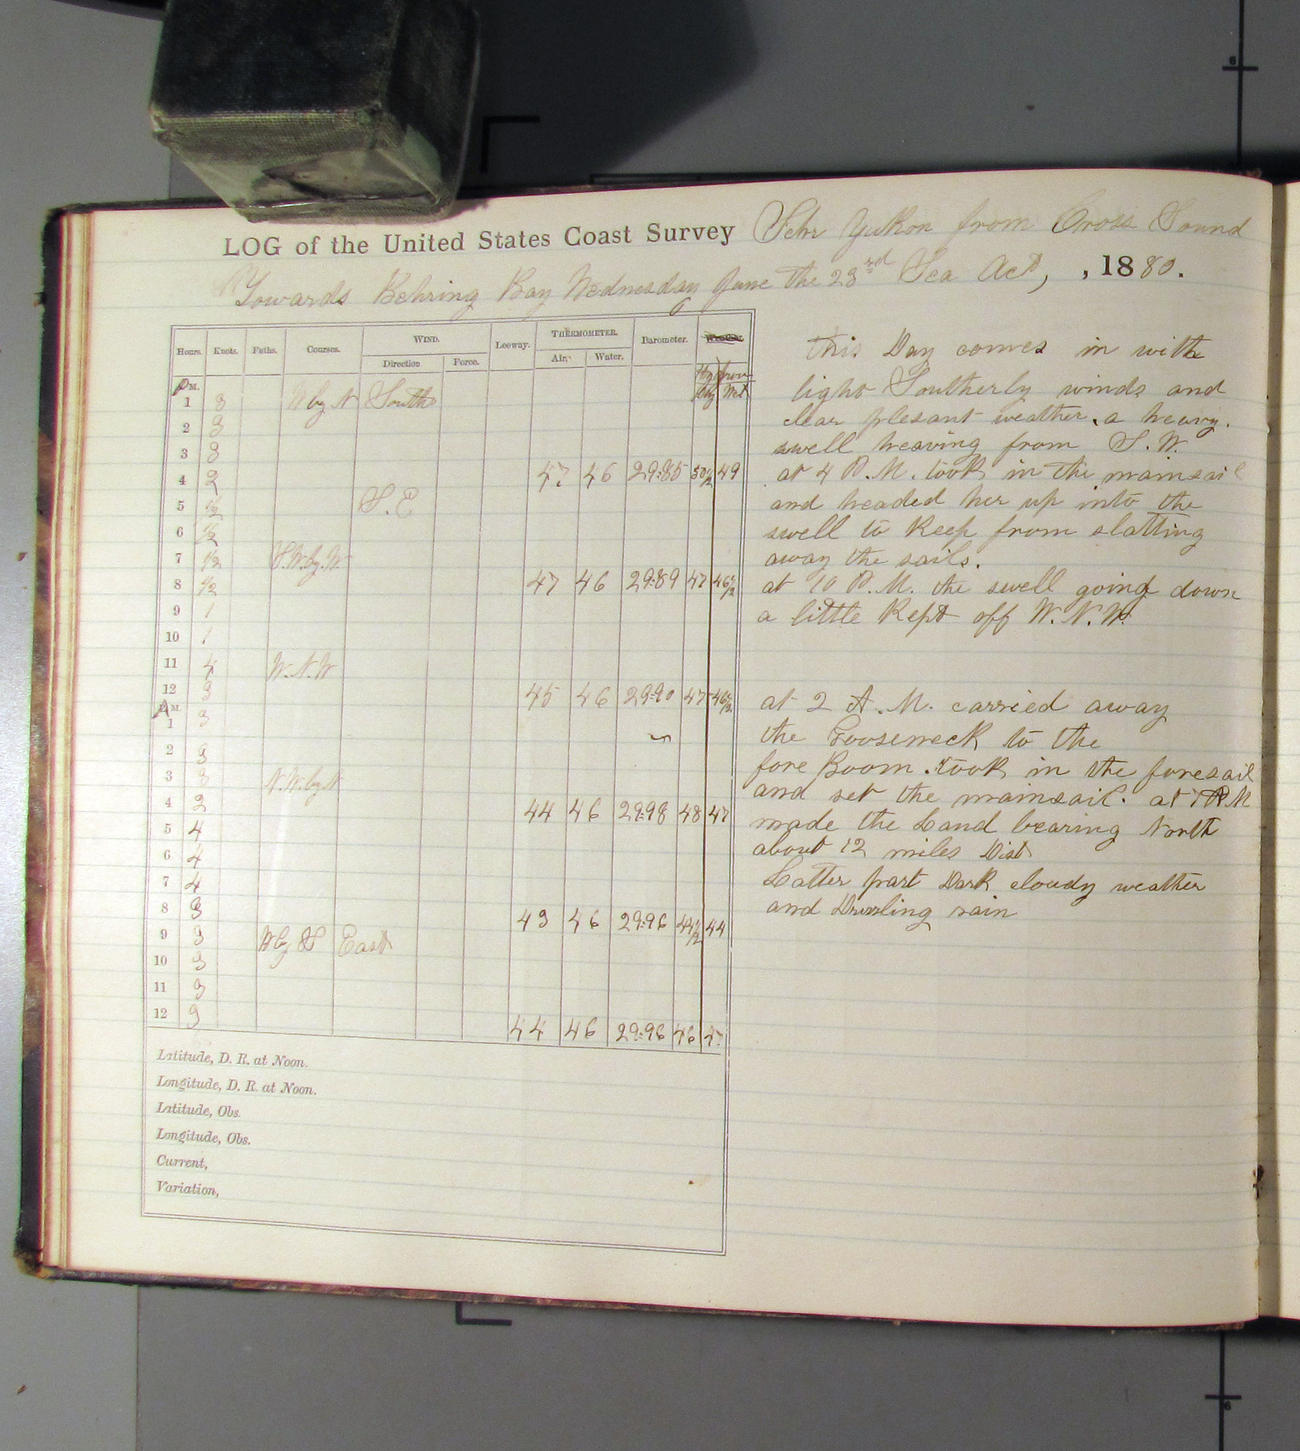 LOG of the United States Coast Survey Schr Yukon from Cross Sound
Towards Behring Bay Wednesday June the 23rd Sea Act, , 1880.
Hours. Knots. Faths. Courses. WIND. Leeway. THERMOMETER. Barometer.
Direction Force. Air. Water.
Dry Wet
PM.
1 3 W by N South
2 3
3 3
4 2 47 46 29.85 50 1/2 49
5 1/2 S. E
6 1/2
7 1/2 S.W. by. W
8 1/2 47 46 29.89 47 46 1/2
9 1
10 1
11 4 W. N. W
12 3 45 46 29.90 47 46 1/2
AM.
1 3
2 3
3 3 N. W. by N
4 2 44 46 29.98 48 47
5 4
6 4
7 4
8 3 43 46 29.96 44 1/2 44
9 3 East
10 3
11 3
12 3 44 46 29.96 46 47
Latitude, D. R. at Noon.
Longitude, D. R. at Noon.
Latitude, Obs.
Longitude, Obs.
Current,
Variation,
this Day comes in with
light Southerly winds and
clear plesant weather. a heavy.
swell heaving from S. W.
at 4 P. M. took in the mainsail
and headed her up into the
swell to Keep from slatting
away the sails.
at 10 P. M. the swell going down
a little Kept off W. N. W.
at 2 A. M. carried away
the Gooseneck to the
fore Boom. took in the foresail
and set the mainsail. at 7 AM
made the Land bearing North
about 12 miles Dist
Latter part Dark cloudy weather
and Drizzling rain
6
6